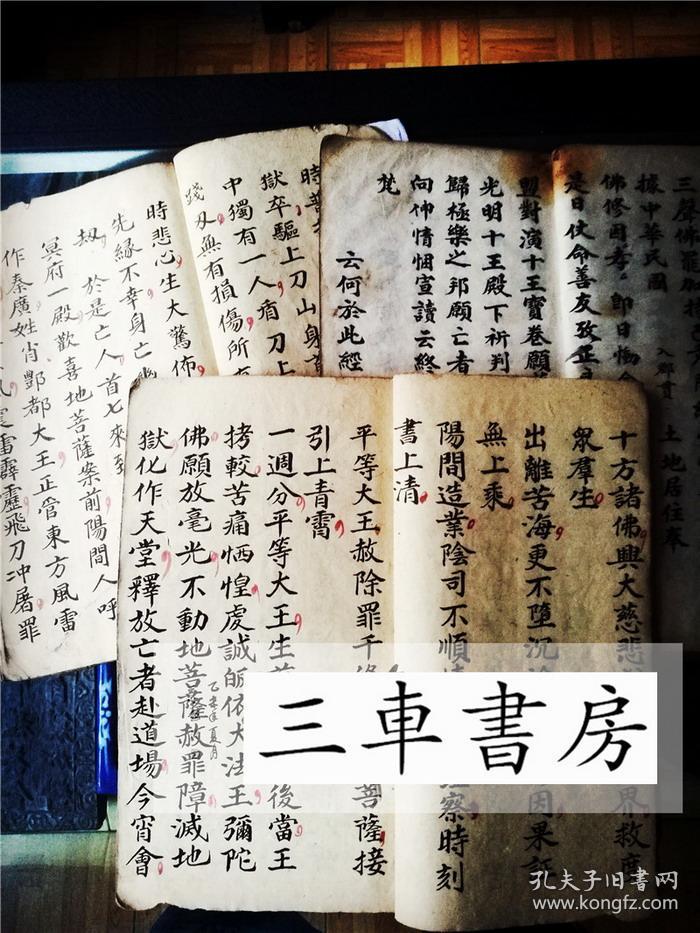 三聲佛羅加
據中華民國
佛修因者。即日
入那貫 土地居住奉
是日使命善友孜正
盟對演十王寶卷願
光明十王殿下祈判
歸極樂之邦願亡者
向伸情悃宣讀云終
梵
云何於此經
時
獄卒驅上刀山身首
中獨有一人看刀上
踐刄無有損傷所
時悲心生大驚怖
先緣不幸身亡
刼於是亡人首七來至
冥府一殿歡喜地菩薩案前陽間人呼
作秦廣姓肖酆都大王正管東方風雷
雷霹靂飛刀冲屠罪
十方諸佛興大慈悲 界救度
衆羣生
出離苦海更不墮沉 因果証
無上乘
陽間造業陰司不順情 察時刻
書上清
平等大王赦除罪千 菩薩接
引上青霄
一週分平等大王生 後當王
拷較苦痛恓惶虔誠皈依大法王彌陀
佛願放毫光不動地菩薩赦罪障滅地
獄化作天堂釋放亡者赴道場今宵會
三車書房
孔夫子旧书网
www.kongfz.com